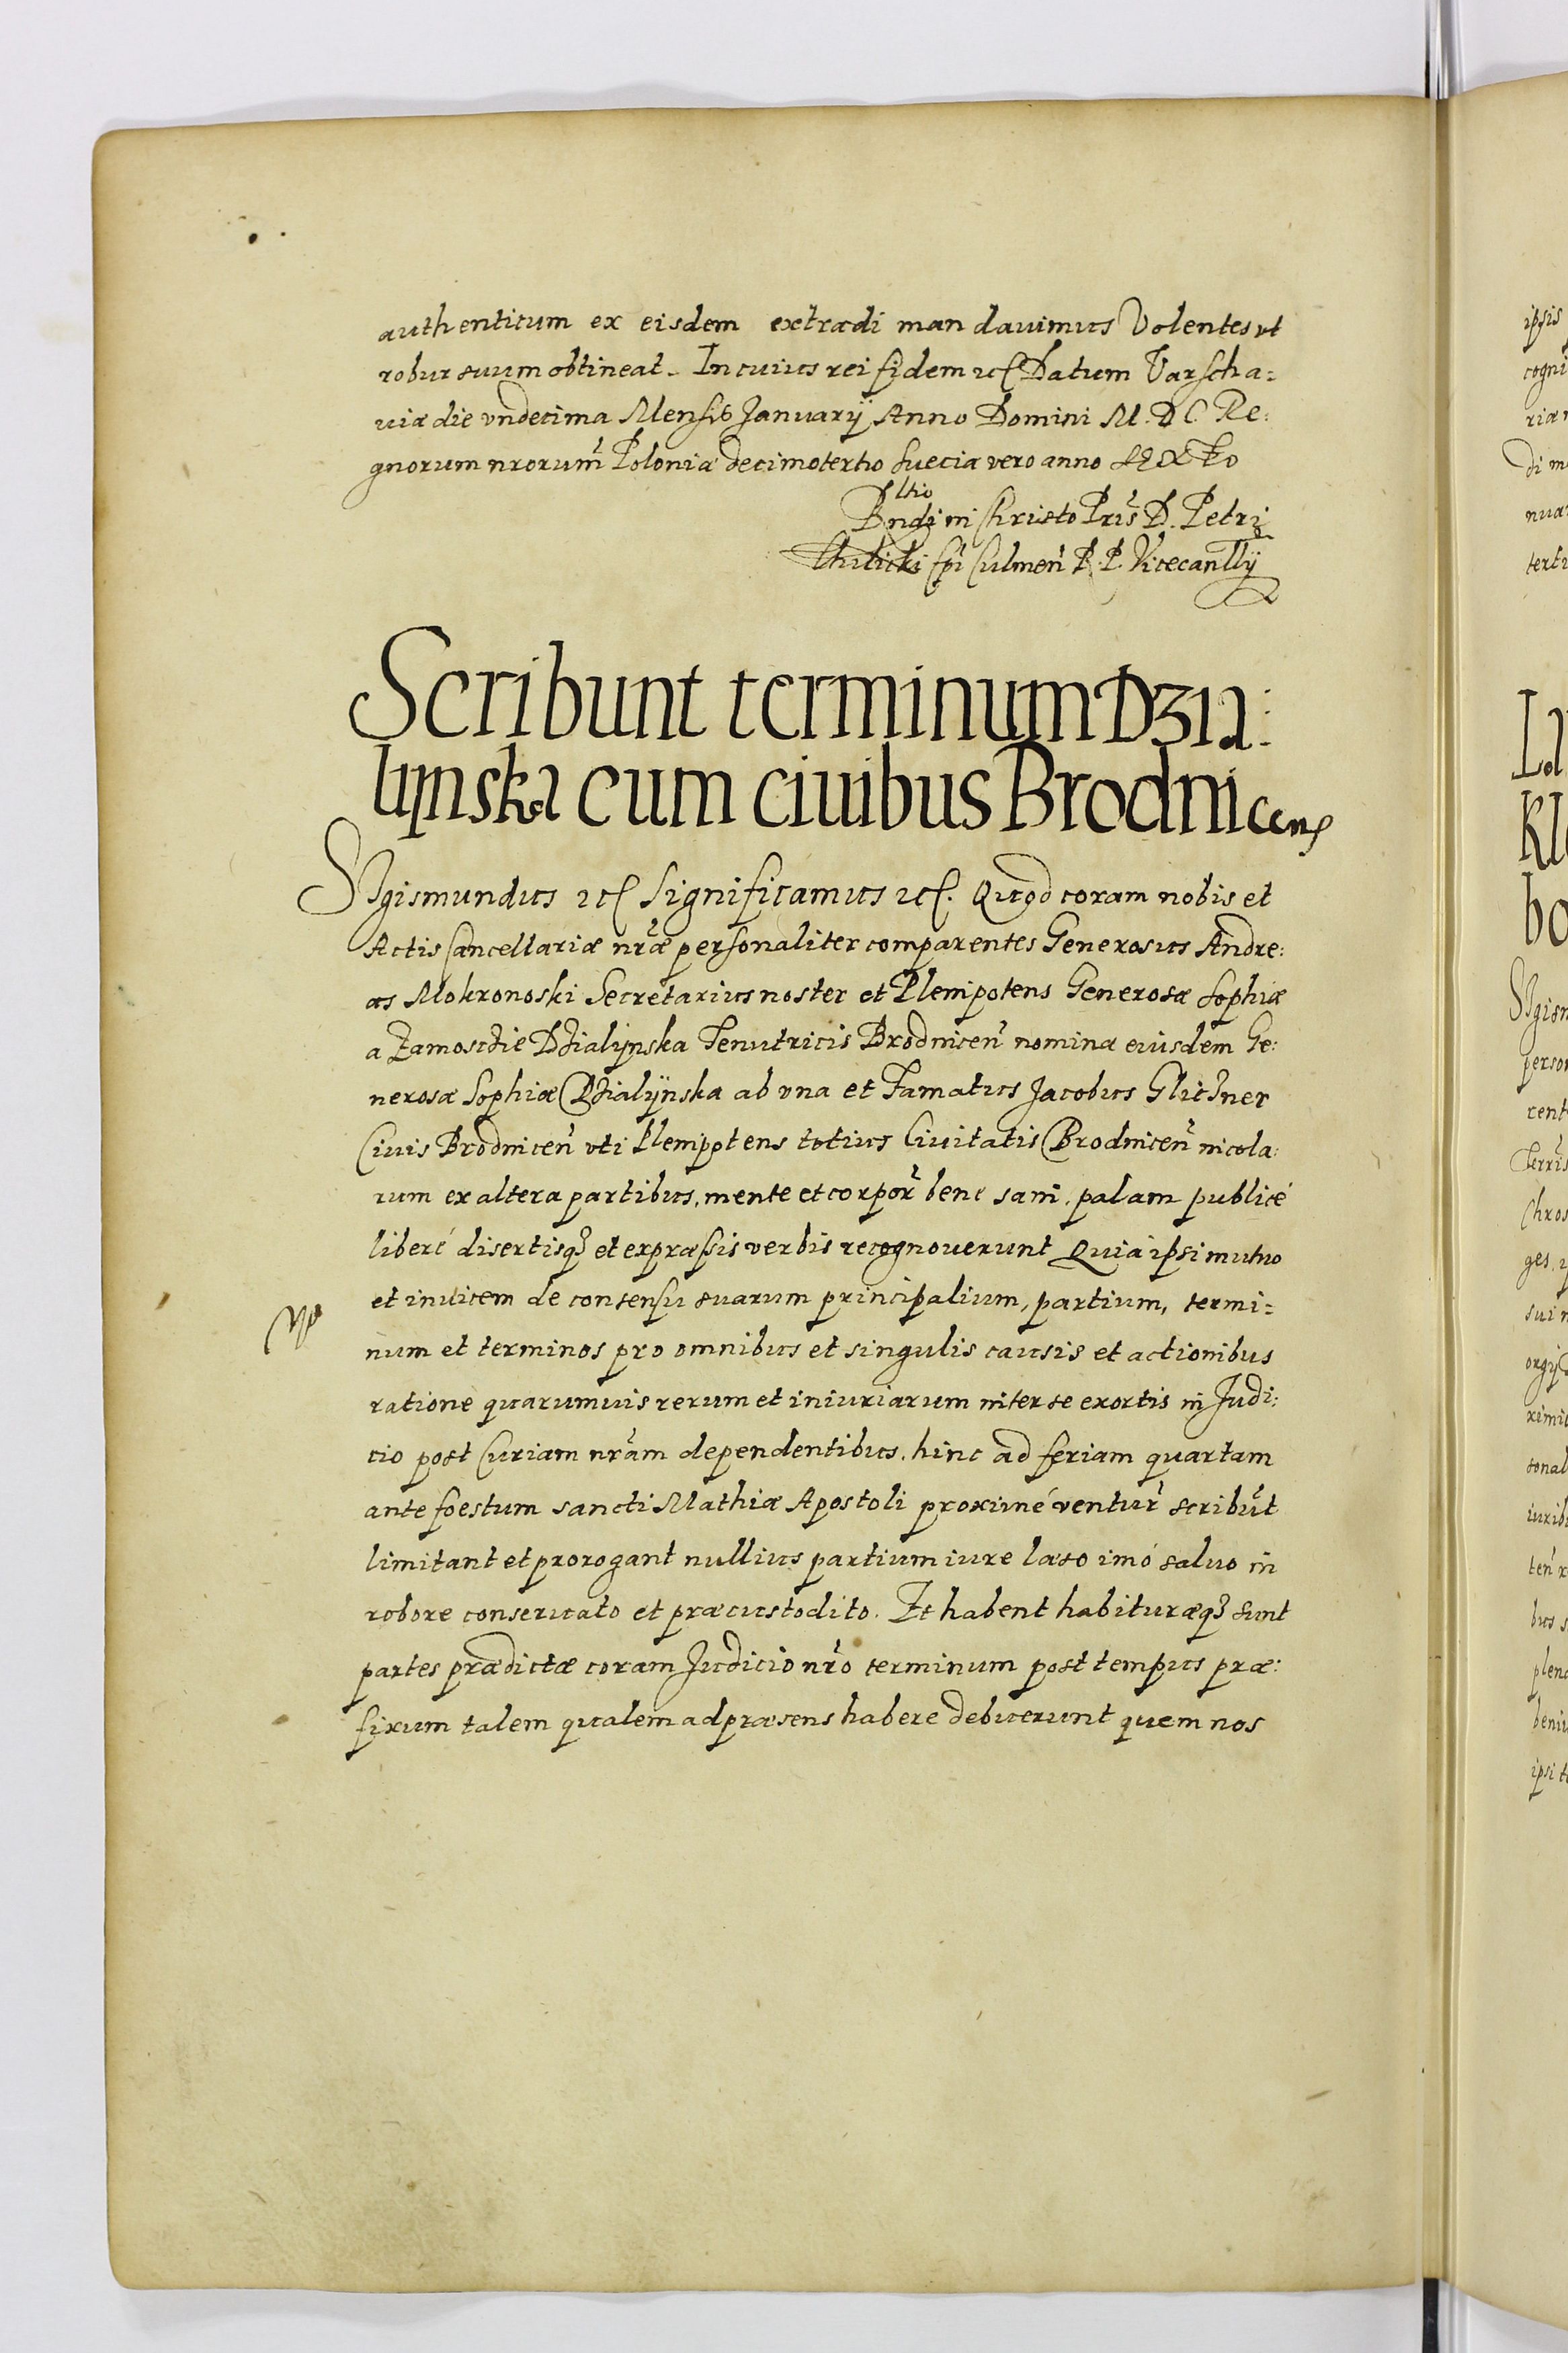 authenticum ex eisdem extradi mandauimus Volentes vt
robur suum obtineat. In cuius rei fidem etc Datum Varscha=
uiæ die vndecima Mensis Januarÿ Anno Domini M.D.C. Re:
gnorum nrorum Poloniæ decimotertio Sueciæ vero anno sexto
Rndi in Christo Pris D. Petri
Tÿlicki Epi Culmen R. P. Vicecanllÿ
Scribunt terminum Dzia:
lynska cum ciuibus Brodnicen
SIgismundus etc Significamus etc. Quod coram nobis et
Actis Cancellariæ nræ personaliter comparentes Generosus Andre:
as Mokronoski Secretarius noster et Plenipotens Generosæ Sophiæ
a Zamosczie Dzialÿnska Tenutricis Brodnicen nomine eiusdem Ge:
nerosæ Sophiæ Dzialÿnska ab vna et Famatus Jacobus Gliczner
Ciuis Brodnicen vti Plenipotens totius Ciuitatis Brodnicen incola:
rum ex altera partibus, mente et corpor bene sani. palam publicé
liberé disertisq3 et expræssis verbis recognouerunt Quia ipsi mutuo
et inuicem de consensu suarum principalium, partium, termi=
num et terminos pro omnibus et singulis causis et actionibus
ratione quarumuis rerum et iniuriarum inter se exortis in Judi:
cio post Curiam nram dependentibus. hinc ad feriam quartam
ante foestum sancti Mathiæ Apostoli proximé ventur scribut
limitant et prorogant nullius partium iure læso imó saluo in
robore conseruato et præcustodito. Et habent habituræq3 sunt
partes prædictæ coram Judicio nro terminum post tempus præ:
fixum talem qualem ad præsens habere debuerunt quem nos